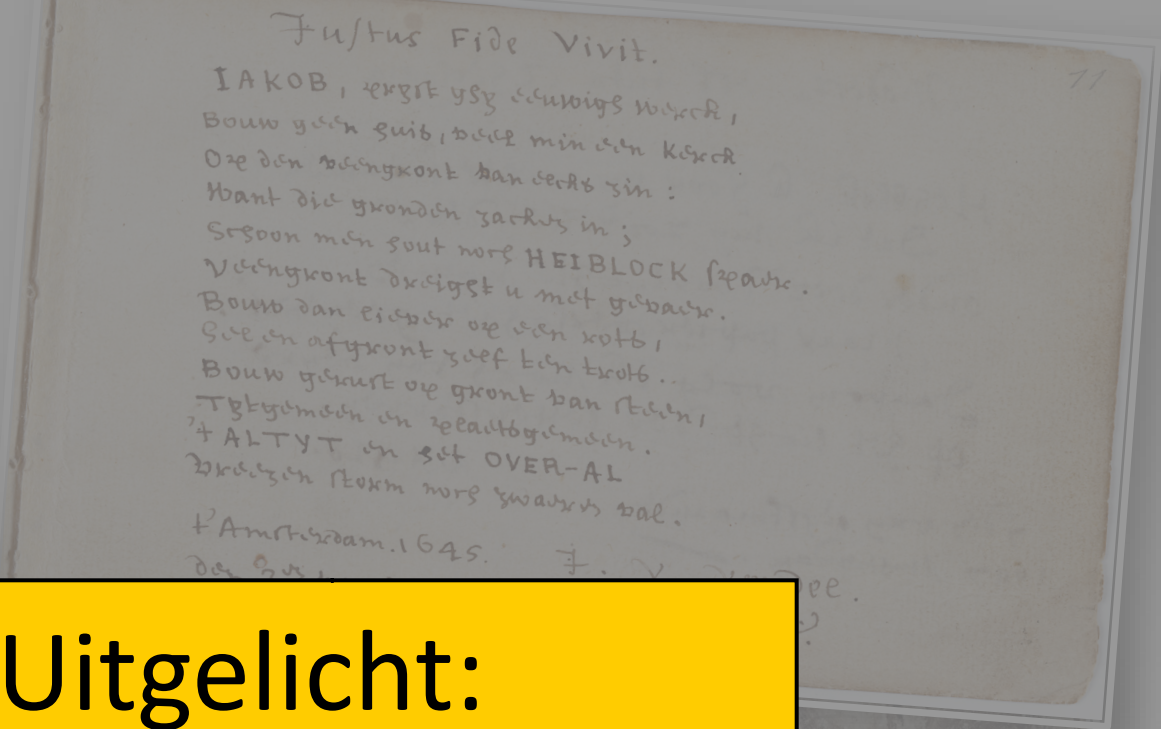 Justus Fide Vivit.
11
IAKOB, zegt gy eeuwigh werck,
Bouw geen huis, veel min een Kerck
Op den veengront van eechs zin:
Want die gronden zacken in;
Schoon men hout noch HEIBLOCK spaar.
Veengront dreight u met gevaar.
Bouw dan liever op een rots,
Hel en afgront zelf ten trots..
Bouw gerust op gront van steen,
Algemeen en plaatsgemeen.
't ALTYT en het OVER-AL
Vreezen storm noch zwaren val.
t'Amsterdam. 1645.
J. V.
Uitgelicht: